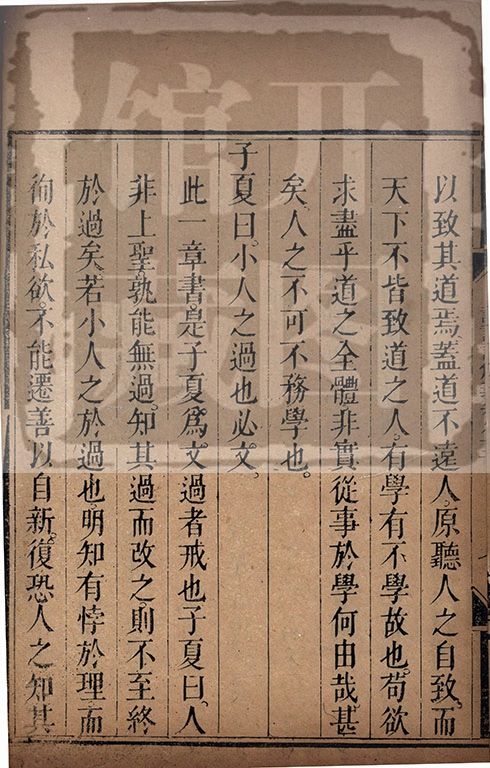 以致其道焉蓋道不遠人原聽人之自致而
天下不皆致道之人有學有不學故也苟欲
求盡乎道之全體非實從事於學何由哉甚
矣人之不可不務學也
子夏曰小人之過也必文
此一章書是子夏爲文過者戒也子夏曰人
非上聖孰能無過知其過而改之則不至終
於過矣若小人之於過也明知有悖於理而
徇於私欲不能遷善以自新復恐人之知其